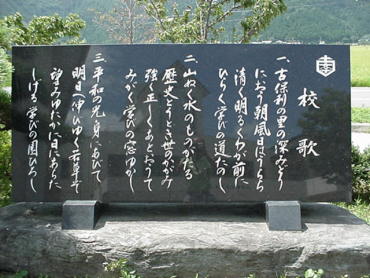 校歌
一、古保利の里の深みどり
におう朝風日はうらら
清く明るくわが前に
ひらく学びの道たのし
二、山ねの水のものがたる
歴史とうとき世のかがみ
強く正しくあとおうて
みがく学びの窓ゆかし
三、平和の光身にあびて
明日へ伸びゆく若草や
望みゆたかに日にあらた
しげる学びの園ひろし